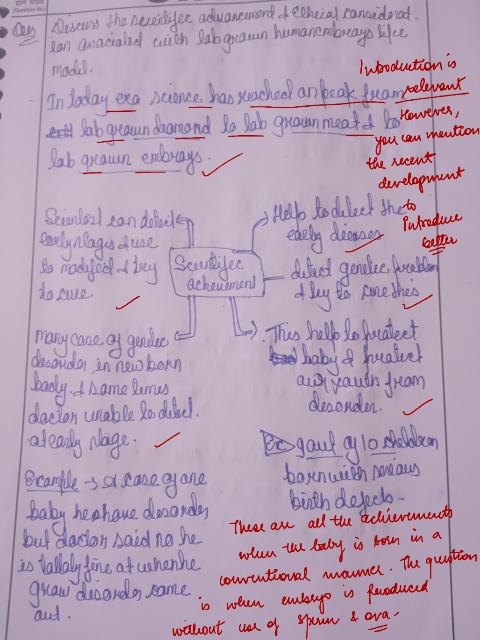 (Question No.)
Qu Discuss the scientifec advancement & ethical considered.
ian asociated with lab grown human embrays life
model.
In today era science has reached on peak from
lab grown diamond to lab grown meat & to
lab grown embrays.
Introduction is
relevant
However,
you can mention
the recent
development
to
Introduce
better
Scientifec
achievement
Scientest can detect
early stages & use
to modifed & try
to cure.
Help to detect the
early dieases
detect genetec problem
& try to cure this
Many case of genetec
disorder in new born
body & some times
doctor unable to detect.
at early stage.
This help to protect
baby & protect
our youth from
desorder.
Ex gout of 10 cheldren
born with serious
birth defects.
Example → A case of one
baby he have desorder
but doctor said no he
is totally fine at when he
grow desorder came
out.
These are all the achievements
when the baby is born in a
conventional manner. The question
is when embryo is produced
without use of sperm & ova.